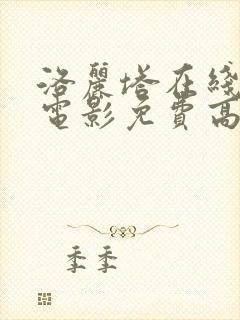 洛麗塔在綫
電影免費高
季季